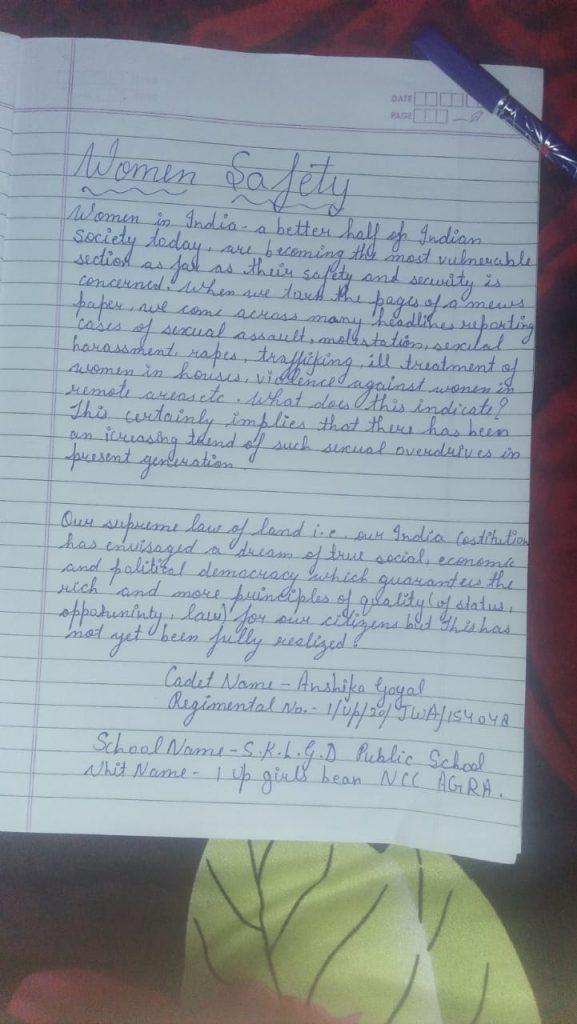 DATE
PAGE
Women Safety
Women in India - a better half of Indian
society today, are becoming the most vulnerable
section as far as their safety and security is
concerned. When we turn the pages of a news
paper, we come across many headlines reporting
cases of sexual assault, molestation, sexual
harassment, rapes, trafficking, ill treatment of
women in houses, violence against women in
remote areas etc. What does this indicate?
This certainly implies that there has been
an icreasing trend of such sexual overdrives in
present generation.
Our supreme law of land i.e. our India Costitution
has envisaged a dream of true social, economic
and political democracy which guarantees the
rich and more principles of quality (of status,
opportuninty, law) for our citizens but this has
not yet been fully realized.
Cadet Name - Anshika Goyal
Regimental No. - 1/Up/20/JWA/154048
School Name - S.K.L.G.D Public School
Unit Name - 1 Up girls bean NCC AGRA.